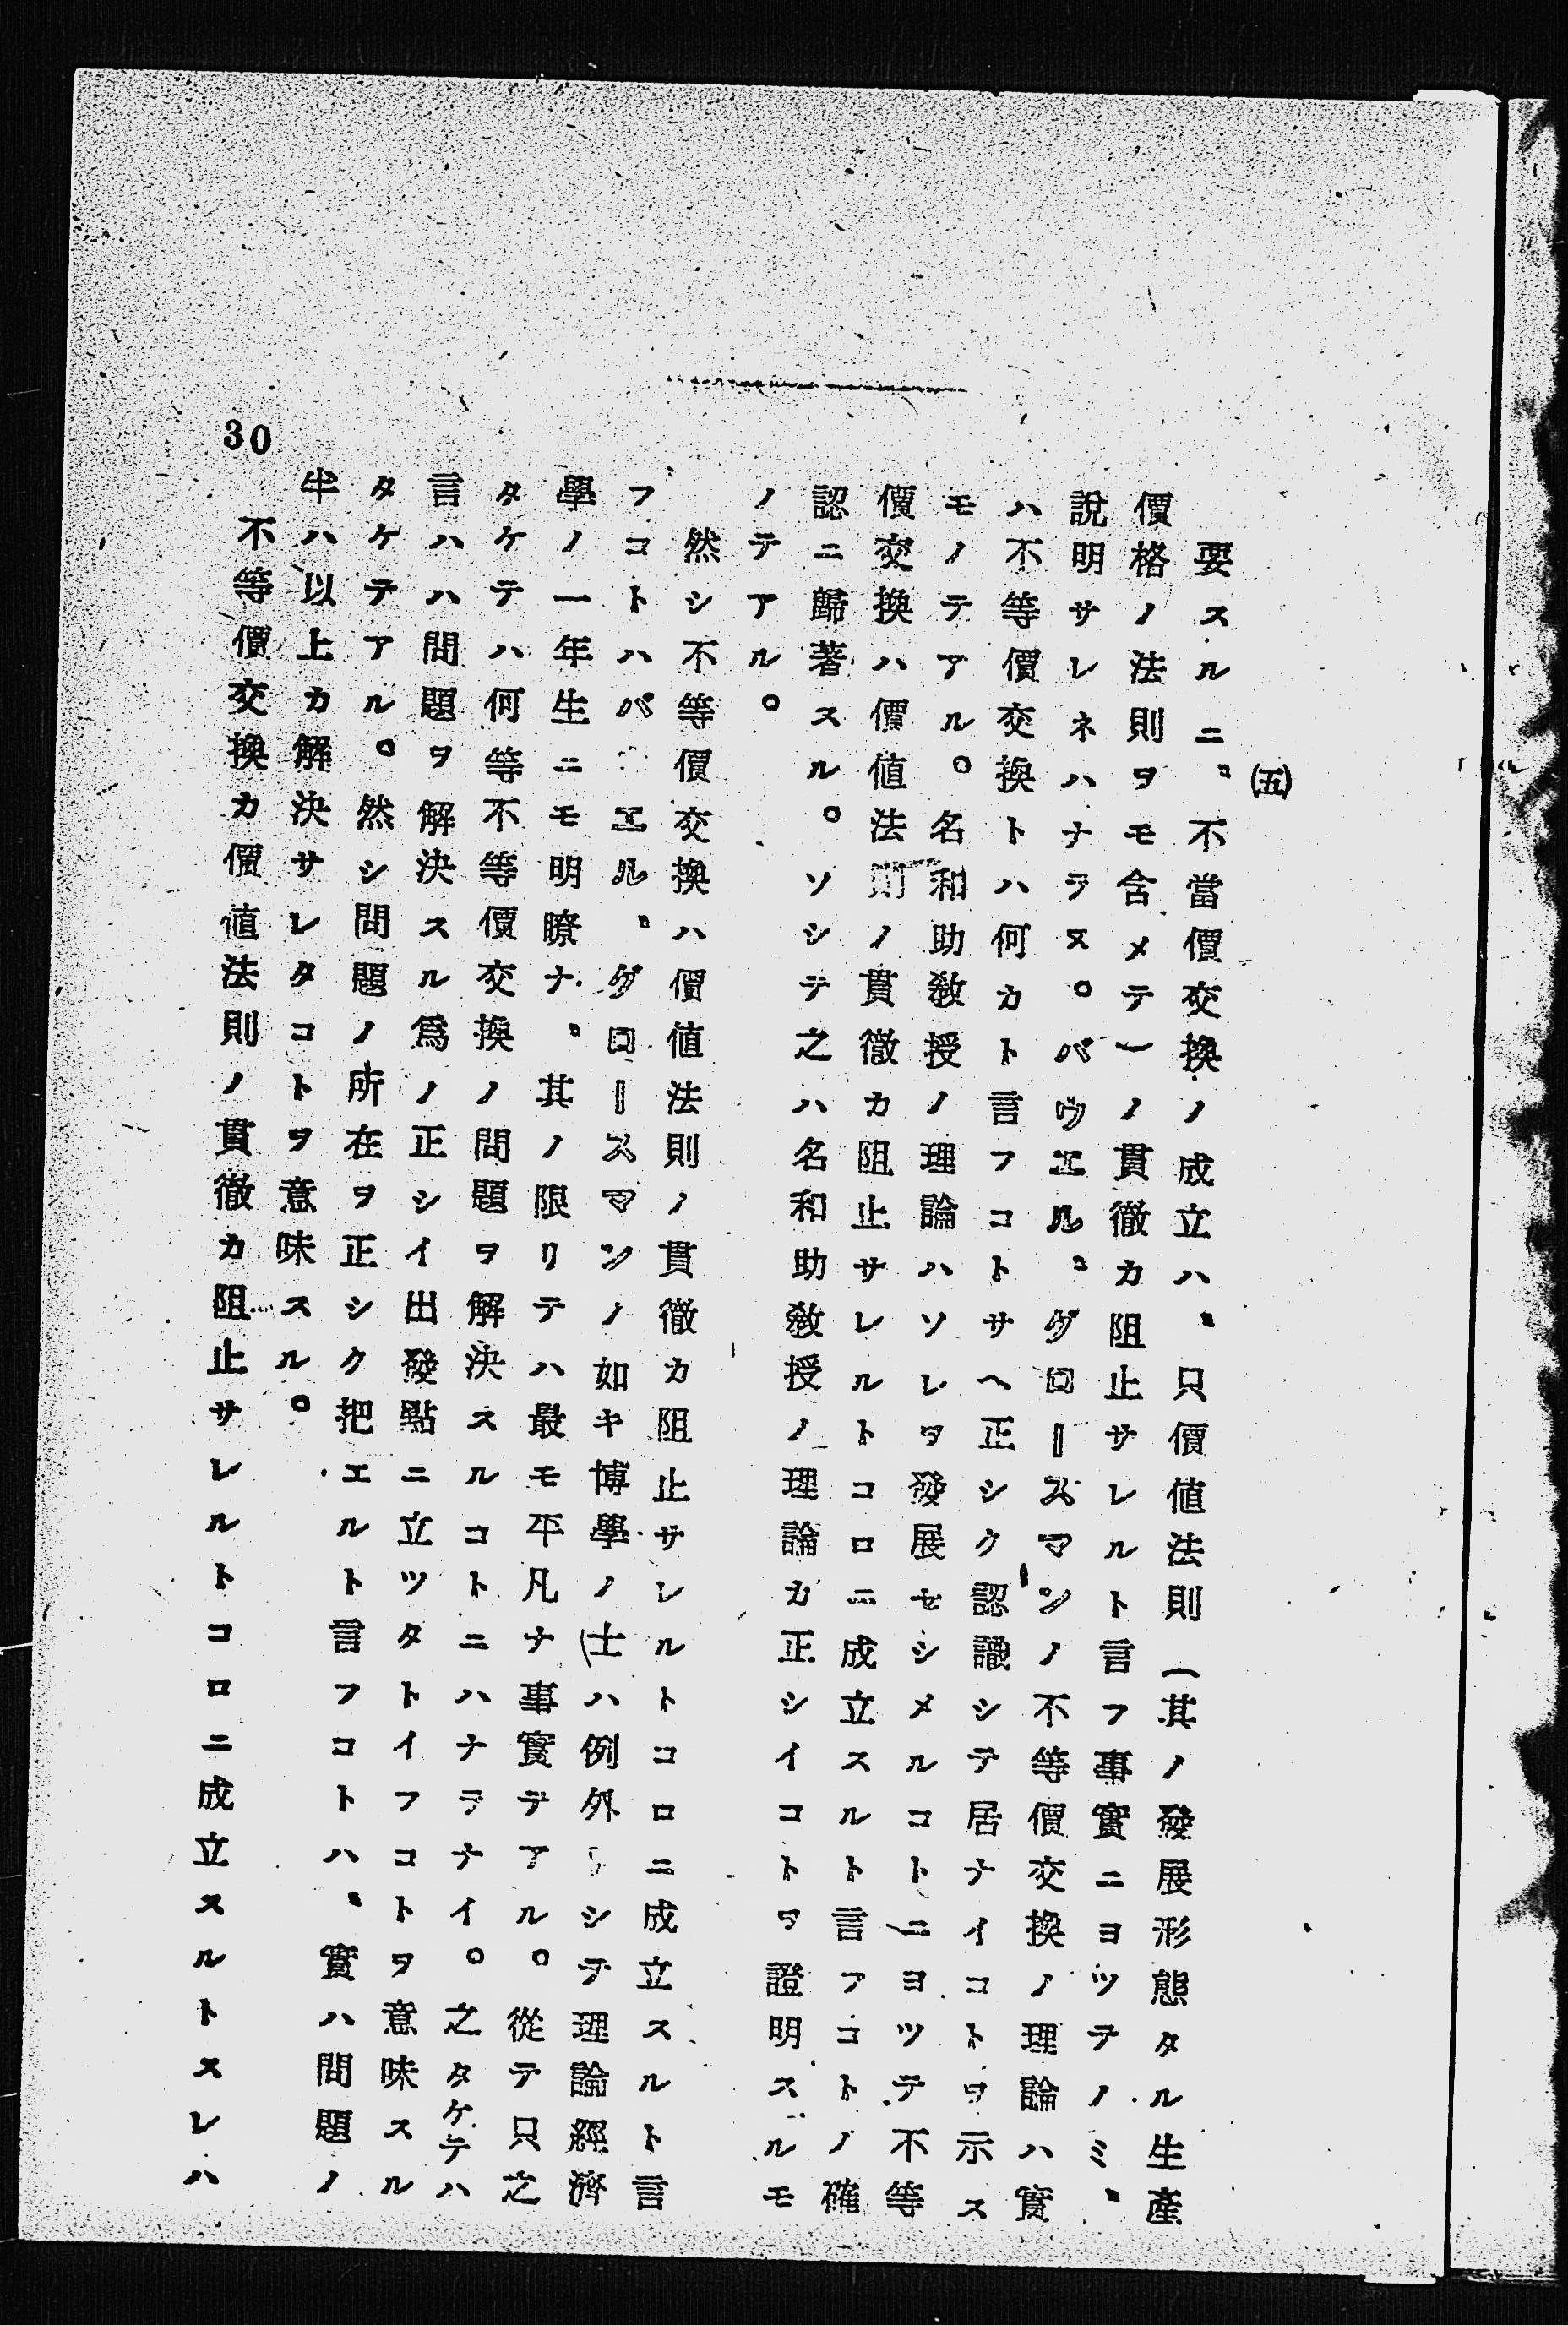 ㈤
要スルニ、不當價交換ノ成立ハ、只價値法則（其ノ發展形態タル生產
價格ノ法則ヲモ含メテ）ノ貫徹カ阻止サレルト言フ事實ニヨツテノミ、
說明サレネハナラヌ。バウエル、グロースマンノ不等價交換ノ理論ハ實
ハ不等價交換トハ何カト言フコトサヘ正シク認識シテ居ナイコトヲ示ス
モノテアル。名和助敎授ノ理論ハソレヲ發展セシメルコトニヨツテ不等
價交換ハ價値法則ノ貫徹カ阻止サレルトコロニ成立スルト言フコトノ確
認ニ歸著スル。ソシテ之ハ名和助敎授ノ理論カ正シイコトヲ證明スルモ
ノテアル。
然シ不等價交換ハ價値法則ノ貫徹カ阻止サレルトコロニ成立スルト言
フコトハバエル、グロースマンノ如キ博學ノ士ハ例外シテ理論經濟
學ノ一年生ニモ明瞭ナ、其ノ限リテハ最モ平凡ナ事實テアル。從テ只之
タケテハ何等不等價交換ノ問題ヲ解決スルコトニハナラナイ。之タケテハ
言ハハ問題ヲ解決スル爲ノ正シイ出發點ニ立ツタトイフコトヲ意味スル
タケテアル。然シ問題ノ所在ヲ正シク把エルト言フコトハ、實ハ問題ノ
半ハ以上カ解決サレタコトヲ意味スル。
不等價交換カ價値法則ノ貫徹カ阻止サレルトコロニ成立スルトスレハ
30